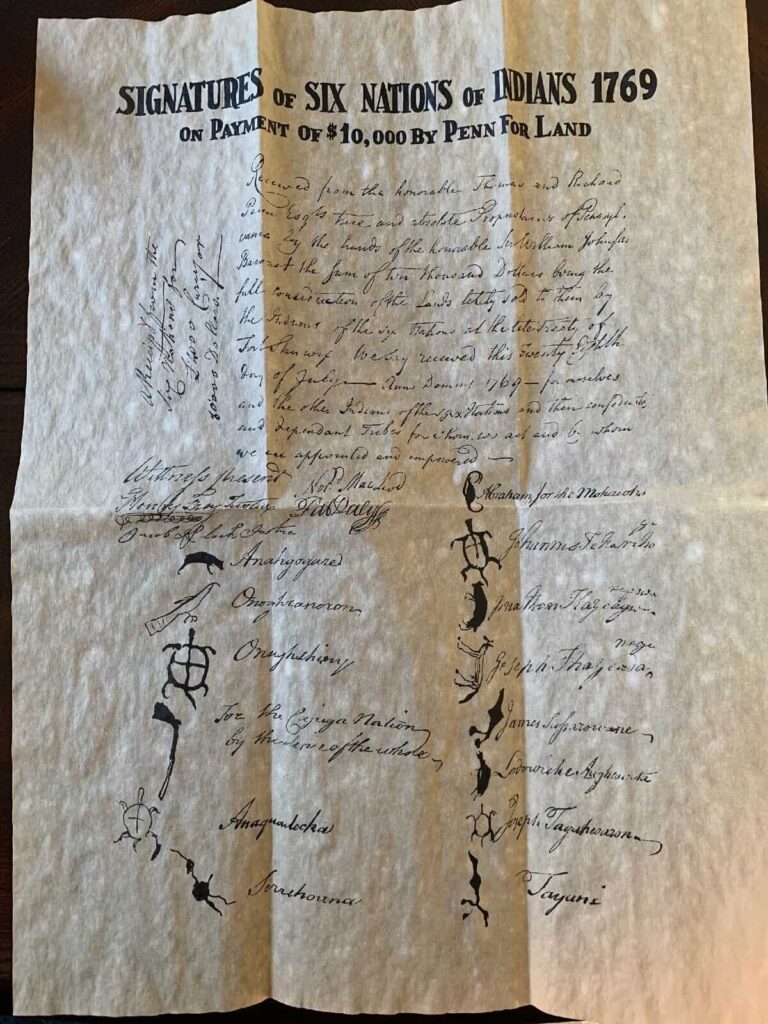 SIGNATURES OF SIX NATIONS OF INDIANS 1769
ON PAYMENT OF $10,000 BY PENN FOR LAND
Received from the honorable Thomas and Richard
Penn Esqrs true and absolute Proprietaries of Pensyl-
vania by the hands of the honorable Sir William Johnson
Baronet the sum of ten thousand Dollars being the
full consideration of the Lands lately sold to them by
the Indians of the six Nations at the late treaty of
Fort Stanwix We say received this Twenty Eighth
day of July Anno Domini 1769 — for ourselves
and the other Indians of the six Nations and their confederate
and dependant Tribes for whom we act and by whom
we are appointed and empowered —
A Receipt from the
Six Nations for
10000 Dollars
Witness present
Henry Frey Justice
Jacob Justice
Nord MacLeod
Pat Daly
Abraham for the Mohawks
Johannes Tekariho
Jonathan
Joseph
James
Lodowicke
Joseph
Tayuni
Anahgoyared
Onoghranoron
For the Cayuga Nation
by the desire of the whole
Anaquadecka